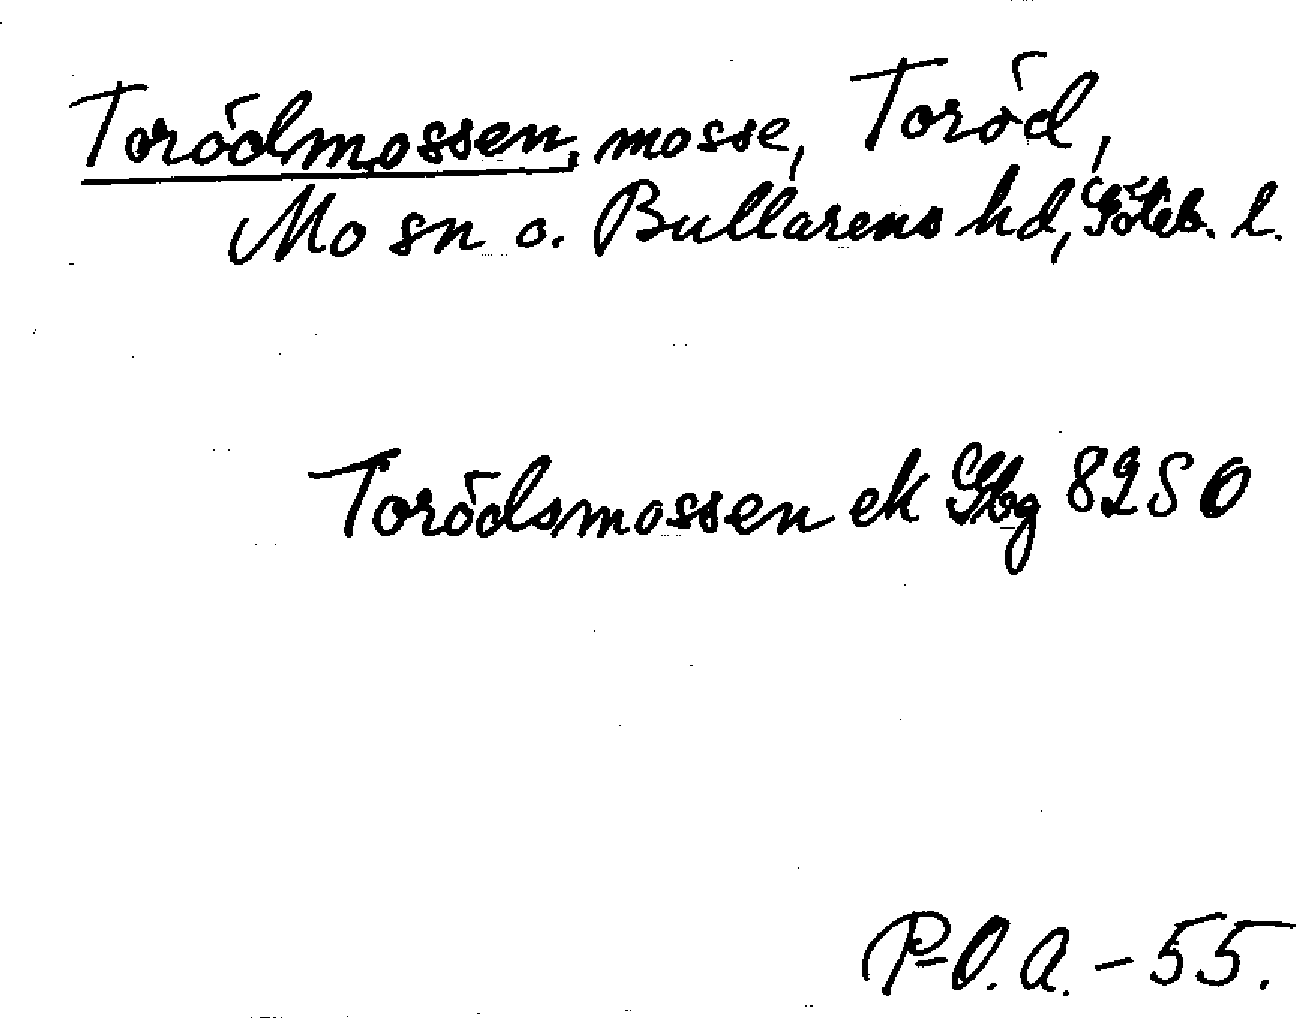 Torödmossen, mosse, Toröd,
Mo sn o. Bullarens hd, Göteb. l.
Torödsmossen ek Gbg 8250
P-O. A. - 55.